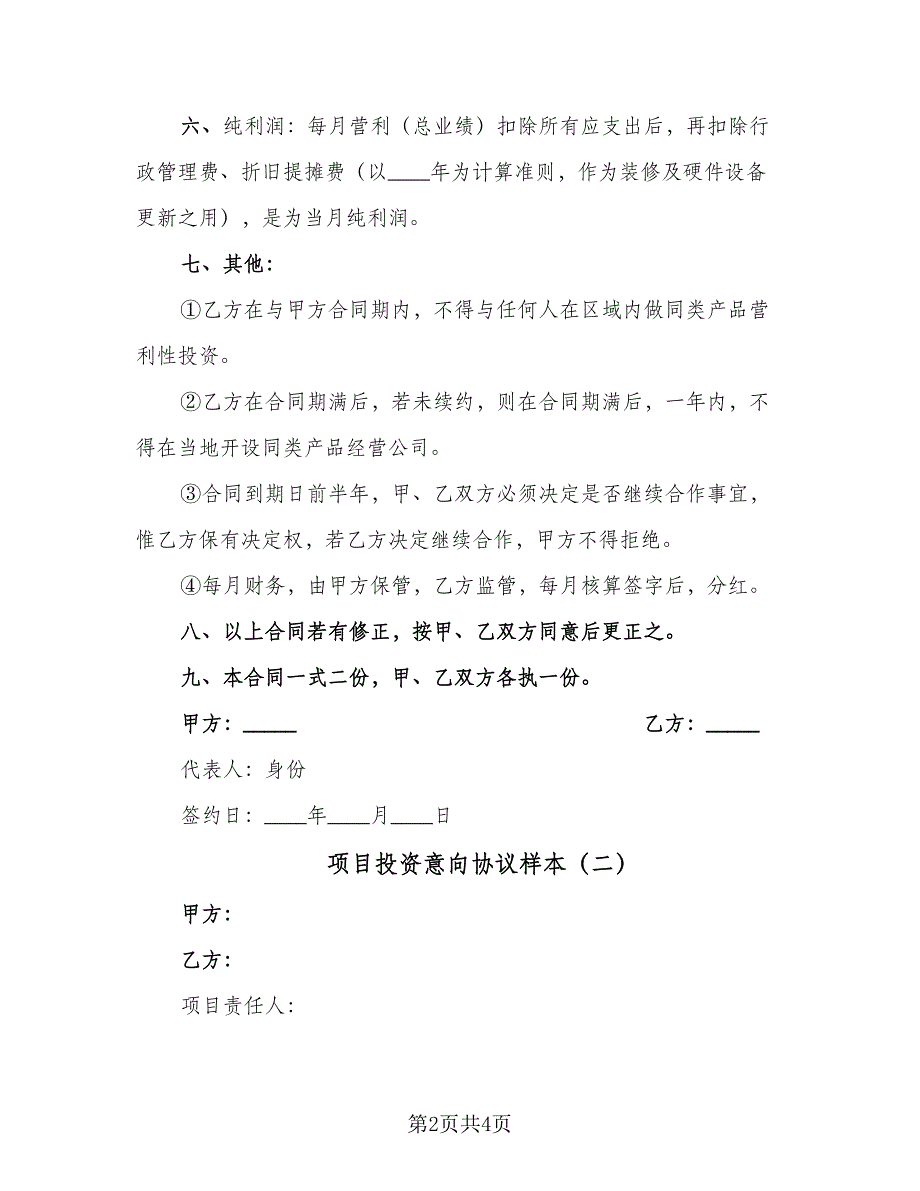 六、纯利润：每月营利（总业绩）扣除所有应支出后，再扣除行
政管理费、折旧提摊费（以____年为计算准则，作为装修及硬件设备
更新之用），是为当月纯利润。
七、其他：
①乙方在与甲方合同期内，不得与任何人在区域内做同类产品营
利性投资。
②乙方在合同期满后，若未续约，则在合同期满后，一年内，不
得在当地开设同类产品经营公司。
③合同到期日前半年，甲、乙双方必须决定是否继续合作事宜，
惟乙方保有决定权，若乙方决定继续合作，甲方不得拒绝。
④每月财务，由甲方保管，乙方监管，每月核算签字后，分红。
八、以上合同若有修正，按甲、乙双方同意后更正之。
九、本合同一式二份，甲、乙双方各执一份。
甲方：_____ 乙方：_____
代表人：身份
签约日：____年____月____日
项目投资意向协议样本（二）
甲方：
乙方：
项目责任人：
第2页共4页